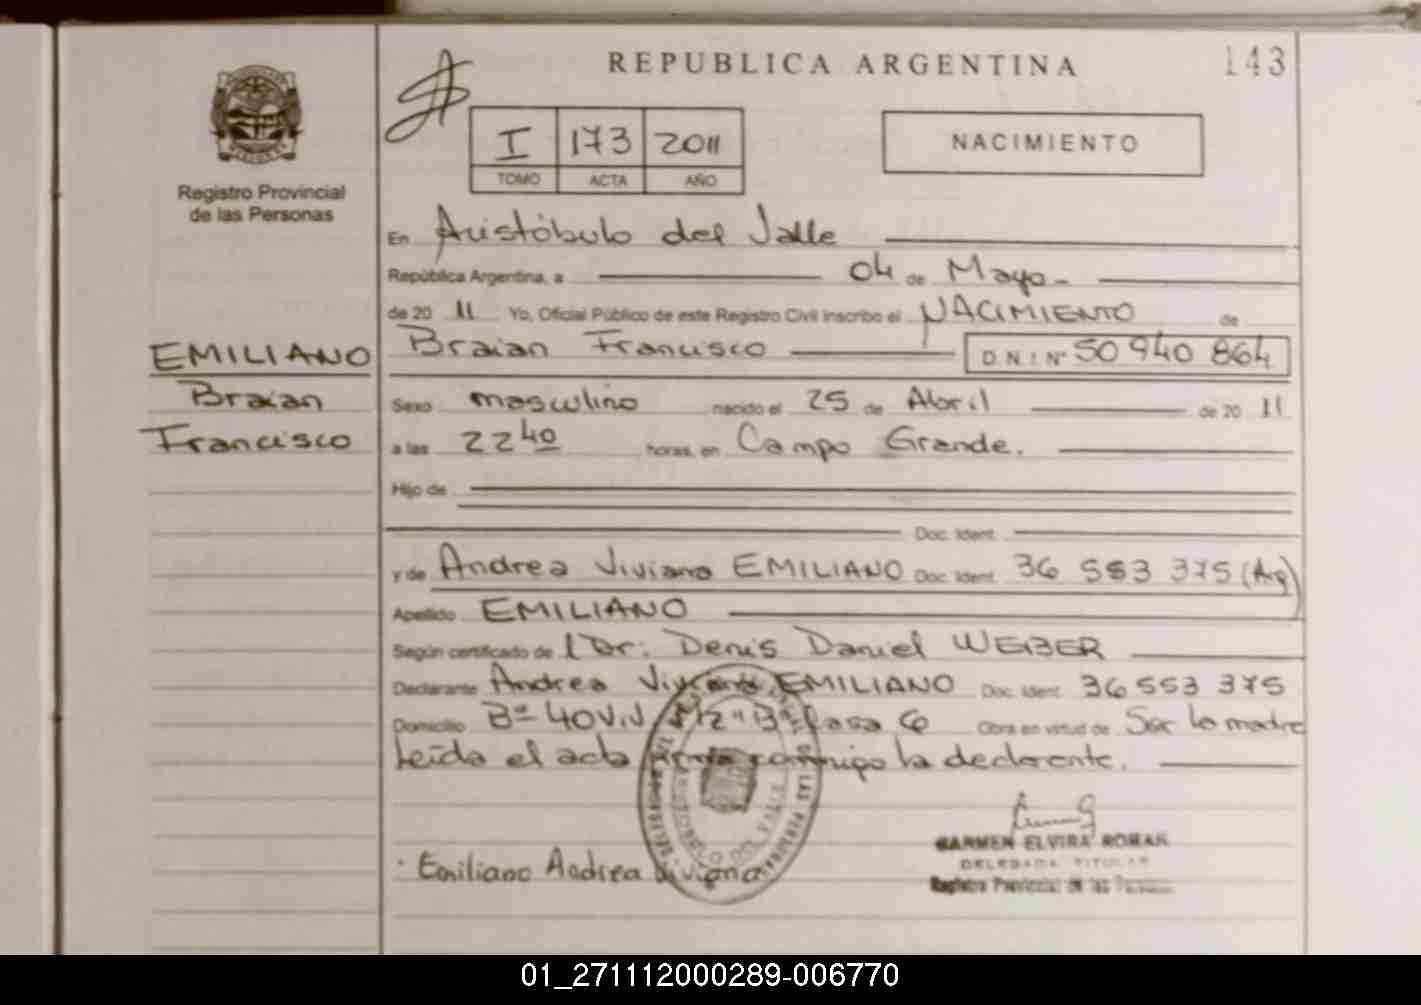 REPUBLICA ARGENTINA
143
I 173 2011
TOMO ACTA AÑO
NACIMIENTO
Registro Provincial
de las Personas
En Aristóbulo del Valle
República Argentina, a 04 de Mayo
de 20 11 Yo, Oficial Público de este Registro Civil inscribo el NACIMIENTO de
EMILIANO
Braian
Francisco
Braian Francisco D.N.I Nº 50 940 864
Sexo masculino nacido el 25 de Abril de 20 11
a las 22 40 horas, en Campo Grande.
Hijo de
Doc. Ident.
y de Andrea Viviana EMILIANO Doc. Ident. 36 553 375 (Arg)
Apellido EMILIANO
Según certificado de l Dr. Denis Daniel WEIBER
Declarante Andrea Viviana EMILIANO Doc. Ident. 36 553 375
Domicilio Bº 40 Viv. Mz "B" Casa 6 Obra en virtud de Ser la madre
Leída el acta firma conmigo la declarante.
Emiliano Andrea Viviana
CARMEN ELVIRA ROMAN
DELEGADA TITULAR
Registro Provincial de las Personas
01_271112000289-006770